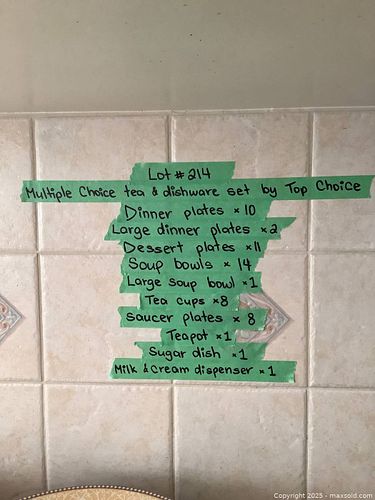 Lot # 214
Multiple Choice tea & dishware set by Top Choice
Dinner plates × 10
Large dinner plates × 2
Dessert plates × 11
Soup bowls × 14
Large soup bowl × 1
Tea cups × 8
Saucer plates × 8
Teapot × 1
Sugar dish × 1
Milk & Cream dispenser × 1
Copyright 2025 - maxsold.com